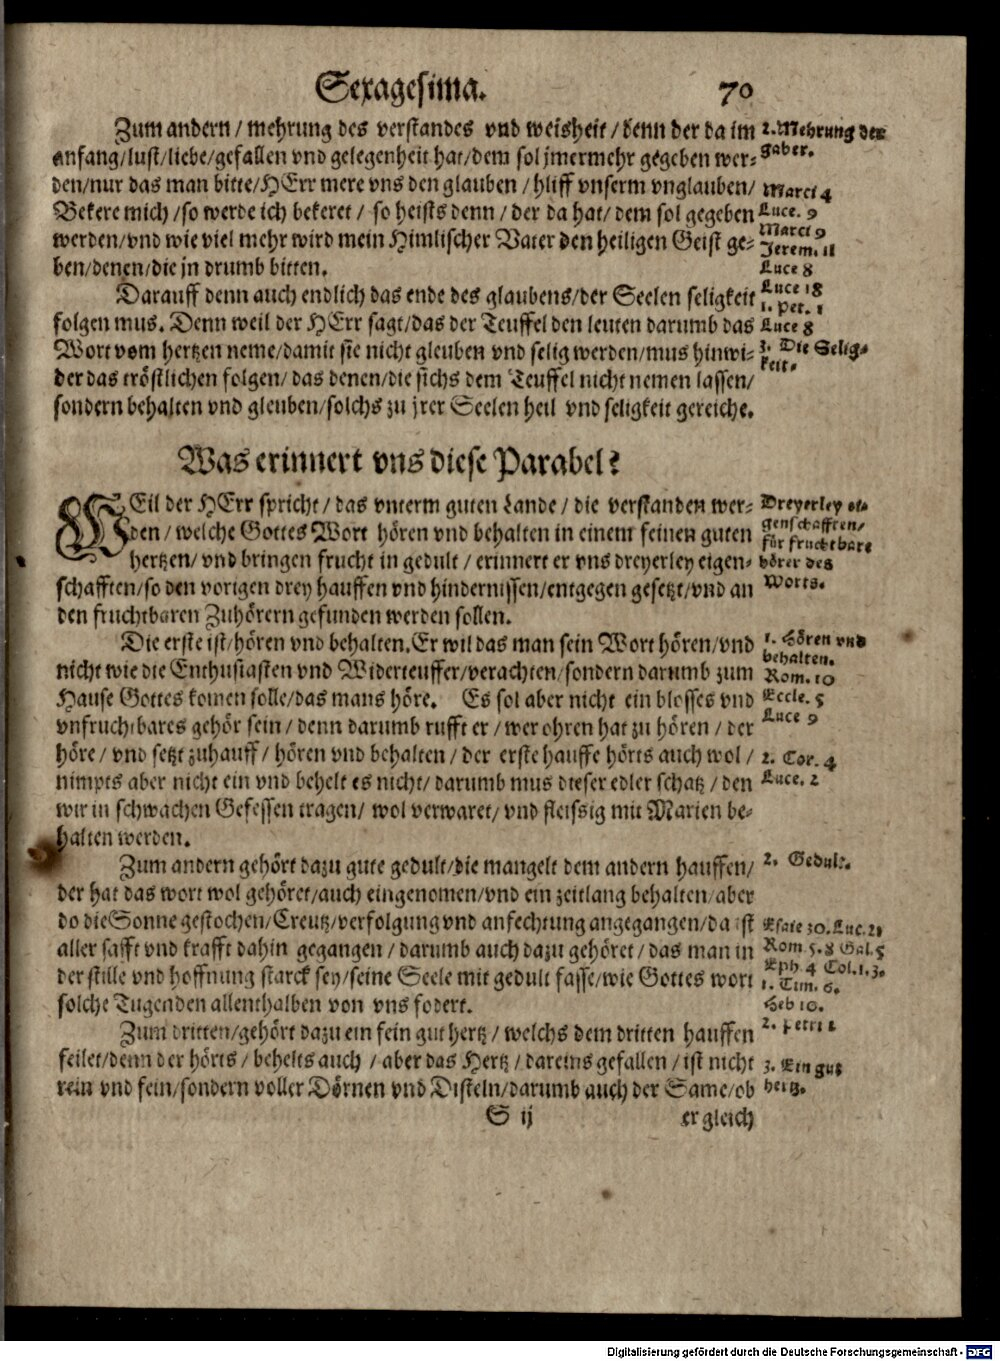 Sexagesima. 70
Zum andern / mehrung des verstandes vnd weisheit / denn der da im
anfang/lust/liebe/gefallen vnd gelegenheit hat/dem sol jmermehr gegeben wer-
den/nur das man bitte/HErr mere vns den glauben / hliff vnserm vnglauben/
Bekere mich /so werde ich bekeret / so heists denn / der da hat/ dem sol gegeben
werden/vnd wie viel mehr wird mein Himlischer Vater den heiligen Geist ge-
ben/denen/die jn drumb bitten.
2. Mehrung der
gaben.
Marci 4
Luce. 9
Marci 9
Jerem. 11
Luce 8
Darauff denn auch endlich das ende des glaubens/der Seelen seligkeit
folgen mus. Denn weil der HErr sagt/das der Teuffel den leuten darumb das
Wort vom hertzen neme/damit sie nicht gleuben vnd selig werden/mus hinwi-
der das tröstlichen folgen/ das denen/die sichs dem Teuffel nicht nemen lassen/
sondern behalten vnd gleuben/solchs zu jrer Seelen heil vnd seligkeit gereiche.
Luce 18
1. Pet. 1
Luce 8
3. Die Selig-
keit.
Was erinnert vns diese Parabel?
WEil der HErr spricht/ das vnterm guten Lande / die verstanden wer-
den / welche Gottes Wort hören vnd behalten in einem feinen guten
hertzen/ vnd bringen frucht in gedult / erinnert er vns dreyerley eigen-
schafften/so den vorigen drey hauffen vnd hindernissen/entgegen gesetzt/vnd an
den fruchtbaren Zuhörern gefunden werden sollen.
Dreyerley ei-
genschafften/
für fruchtbare
hörer des
Worts.
Die erste ist/hören vnd behalten.Er wil das man sein Wort hören/vnd
nicht wie die Enthusiasten vnd Widerteuffer/verachten/sondern darumb zum
Hause Gottes komen solle/das mans höre. Es sol aber nicht ein blosses vnd
vnfruchtbares gehör sein / denn darumb rufft er / wer ohren hat zu hören / der
höre / vnd setzt zuhauff / hören vnd behalten / der erste hauffe hörts auch wol /
nimpts aber nicht ein vnd behelt es nicht/ darumb mus dieser edler schatz / den
wir in schwachen Gefessen tragen/ wol verwaret/ vnd fleissig mit Marien be-
halten werden.
1. Hören vnd
behalten.
Rom. 10
Eccle. 5
Luce 9
2. Cor. 4
Luce. 2
Zum andern gehört dazu gute gedult/die mangelt dem andern hauffen/
der hat das wort wol gehöret/auch eingenomen/vnd ein zeitlang behalten/aber
do die Sonne gestochen/Creutz/verfolgung vnd anfechtung angegangen/da ist
aller safft vnd krafft dahin gegangen / darumb auch dazu gehöret / das man in
der stille vnd hoffnung starck sey/seine Seele mit gedult fasse/wie Gottes wort
solche Tugenden allenthalben von vns fodert.
2. Gedult.
Esaie 30. Luc. 21
Rom 5. 8 Gal. 5
Eph 4 Col. 1. 3.
1. Tim. 6.
Heb 10.
2. Petri 1
Zum dritten/gehört dazu ein fein gut hertz / welchs dem dritten hauffen
feilet/denn der hörts / behelts auch / aber das Hertz / dareins gefallen / ist nicht
rein vnd fein/sondern voller Dörnen vnd Disteln/darumb auch der Same/ob
3. Ein gut
hertz.
S ij er gleich
Digitalisierung gefördert durch die Deutsche Forschungsgemeinschaft - DFG